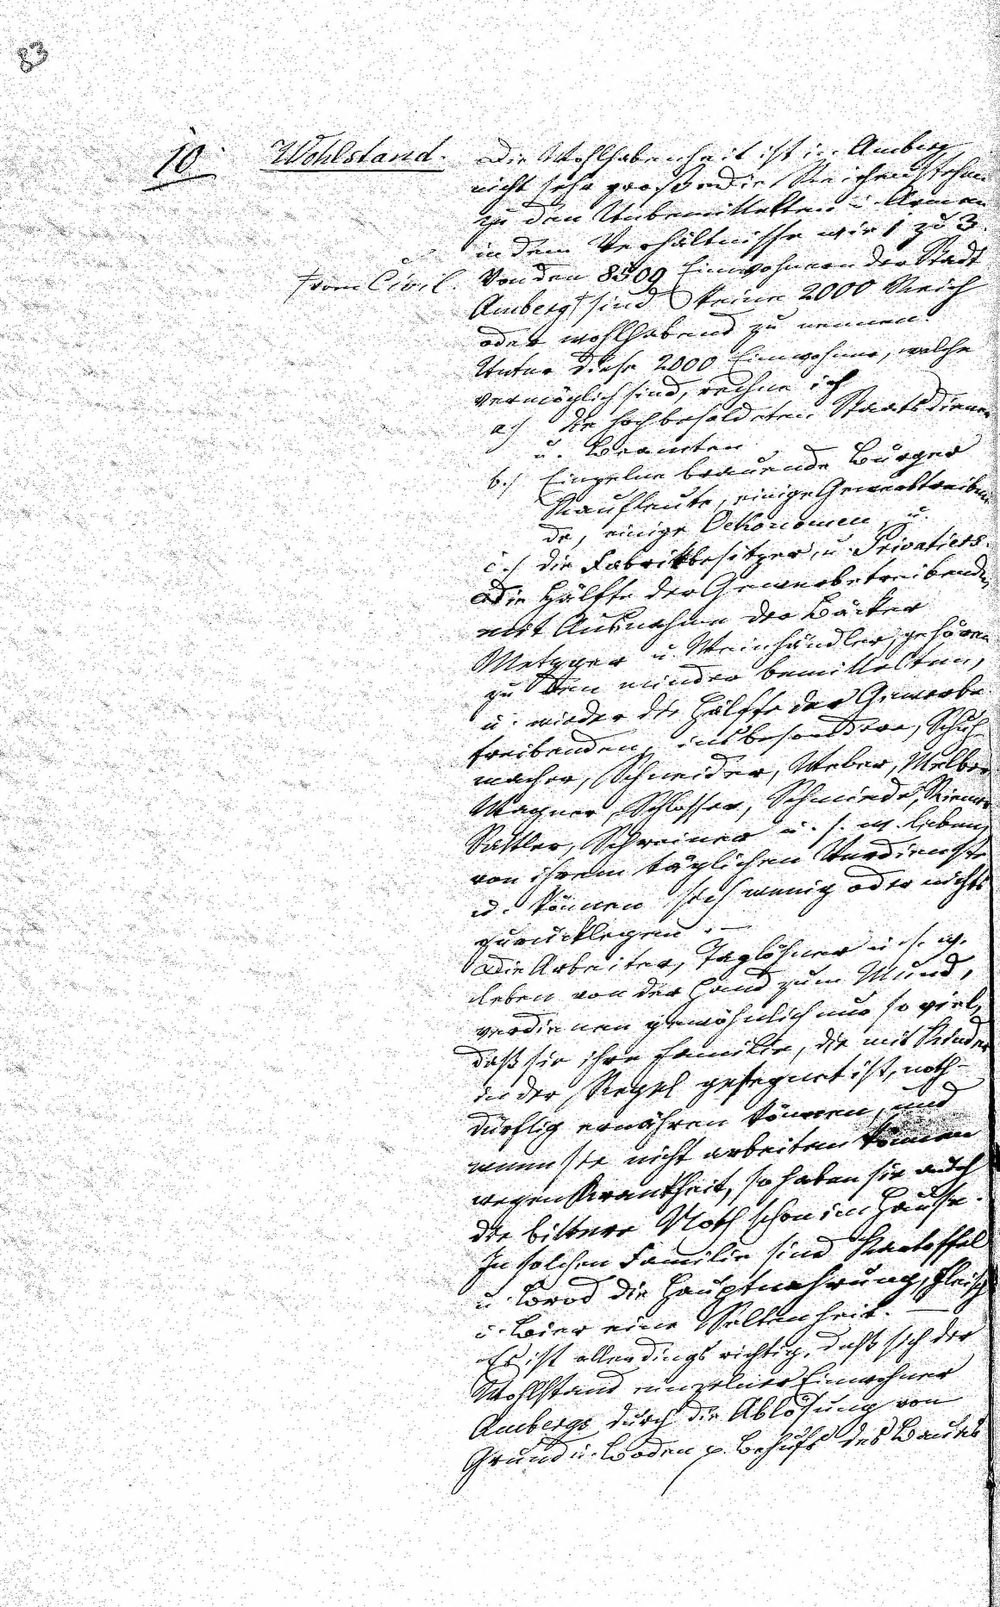 83
10. Wohlstand.
Die Wohlhabenheit ist in Amberg
nicht sehr groß, die Reichen stehen
zu den Unbemittelten u. Armen
in dem Verhältnisse wie 1 zu 3.
† vom Civil.
Von den 8500 Einwohnern der Stadt
Amberg † sind keine 2000 Reich
oder wohlhabend zu nennen.
Unter diese 2000 Einwohner, welche
vermöglich sind, rechne ich
a.) die hochbesoldeten Staatsdiener
u. Beamten
b.) Einzelne brauende Bürger
Kaufleute, einige Gewerbtreiben
de, einige Oekonomen, u.
c.) die Fabrikbesitzer, u. Privatiers.
Die Hälfte der Gewerbetreibenden,
mit Ausnahme der Bäcker
Metzger u. Weinhändler, gehören
zu den minder bemittelten,
u. wieder die Hälfte der Gewerbe
treibenden, insbesondere, Schuh
macher, Schneider, Weber, Melber
Wagner, Schlosser, Schmiede, Riemer
Sattler, Schreiner u. s. w. leben,
von ihrem täglichen Verdienste
u. können sich wenig oder nichts
zurücklegen. –
Die Arbeiter, Taglöhner u. s. w.
leben von der Hand zum Mund,
verdienen gewöhnlich nur so viel,
daß sie ihre Familie, die mit Kinder
in der Regel gesegnet ist, noth-
dürftig ernähren können, und
wenn sie nicht arbeiten können
wegen Krankheit, so haben sie auch
die bittere Noth schon im Hause.
In solchen Familie sind Kartoffel
u. Brod die Hauptnahrung, Fleisch
u. Bier eine Seltenheit. –
Es ist allerdings richtig, daß sich der
Wohlstand einzelner Einwohner
Ambergs durch die Ablösung von
Grund u. Boden p. Behufs des Baues